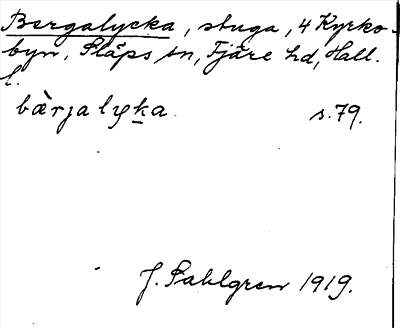 Bergalycka, stuga, 4 Kyrko-
byn, Släps sn, Fjäre hd, Hall.
l.
bærjalyka s.79.
J. Sahlgren 1919.